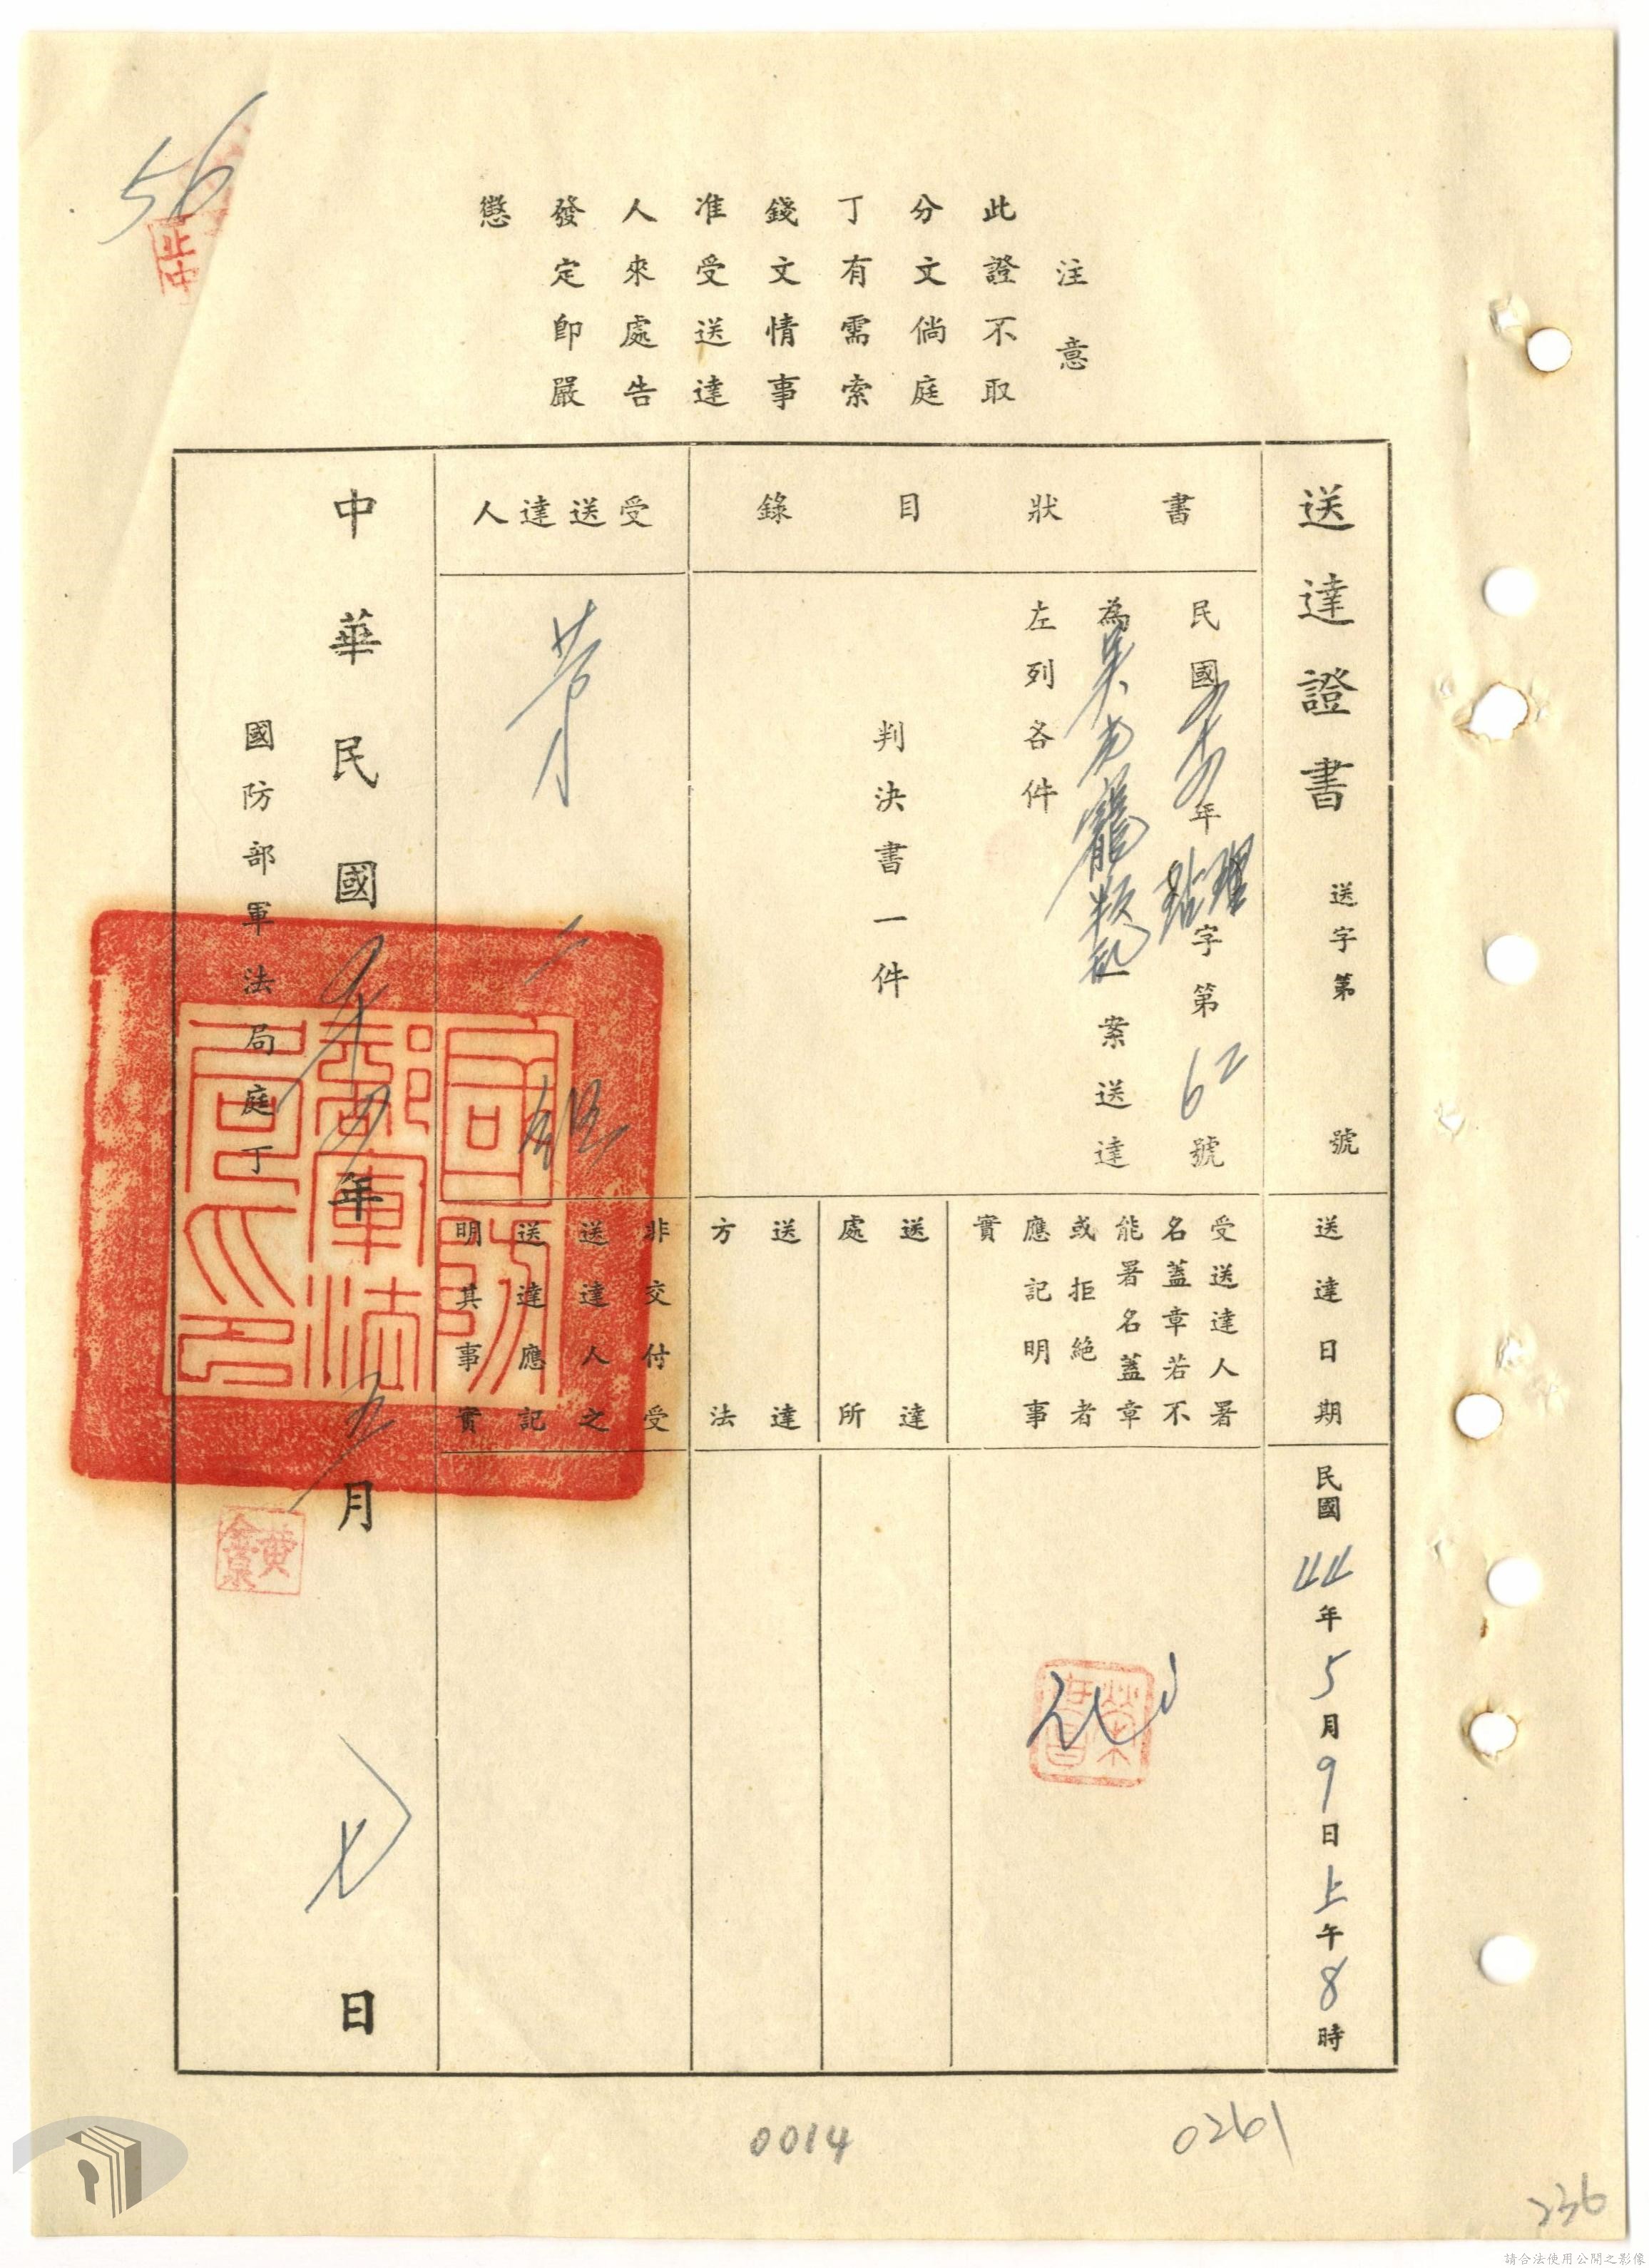 56
注意
此證不取
分文倘庭
丁有需索
錢文情事
准受送達
人來處告
發定即嚴
懲
送達證書
送字第 號
送達日期
民國44年5月9日上午8時
書狀目錄
民國年字第62號
為一案送達
左列各件
判決書一件
受送達人署
名蓋章若不
能署名蓋章
或拒絕者
應記明事
實
送達
處所
送達
方法
受送達人
第二組
非交付受
送達人之
送達應記
明其事實
中華民國年五月七日
國防部軍法局庭丁
0014
0261
236
請合法使用公開之影像